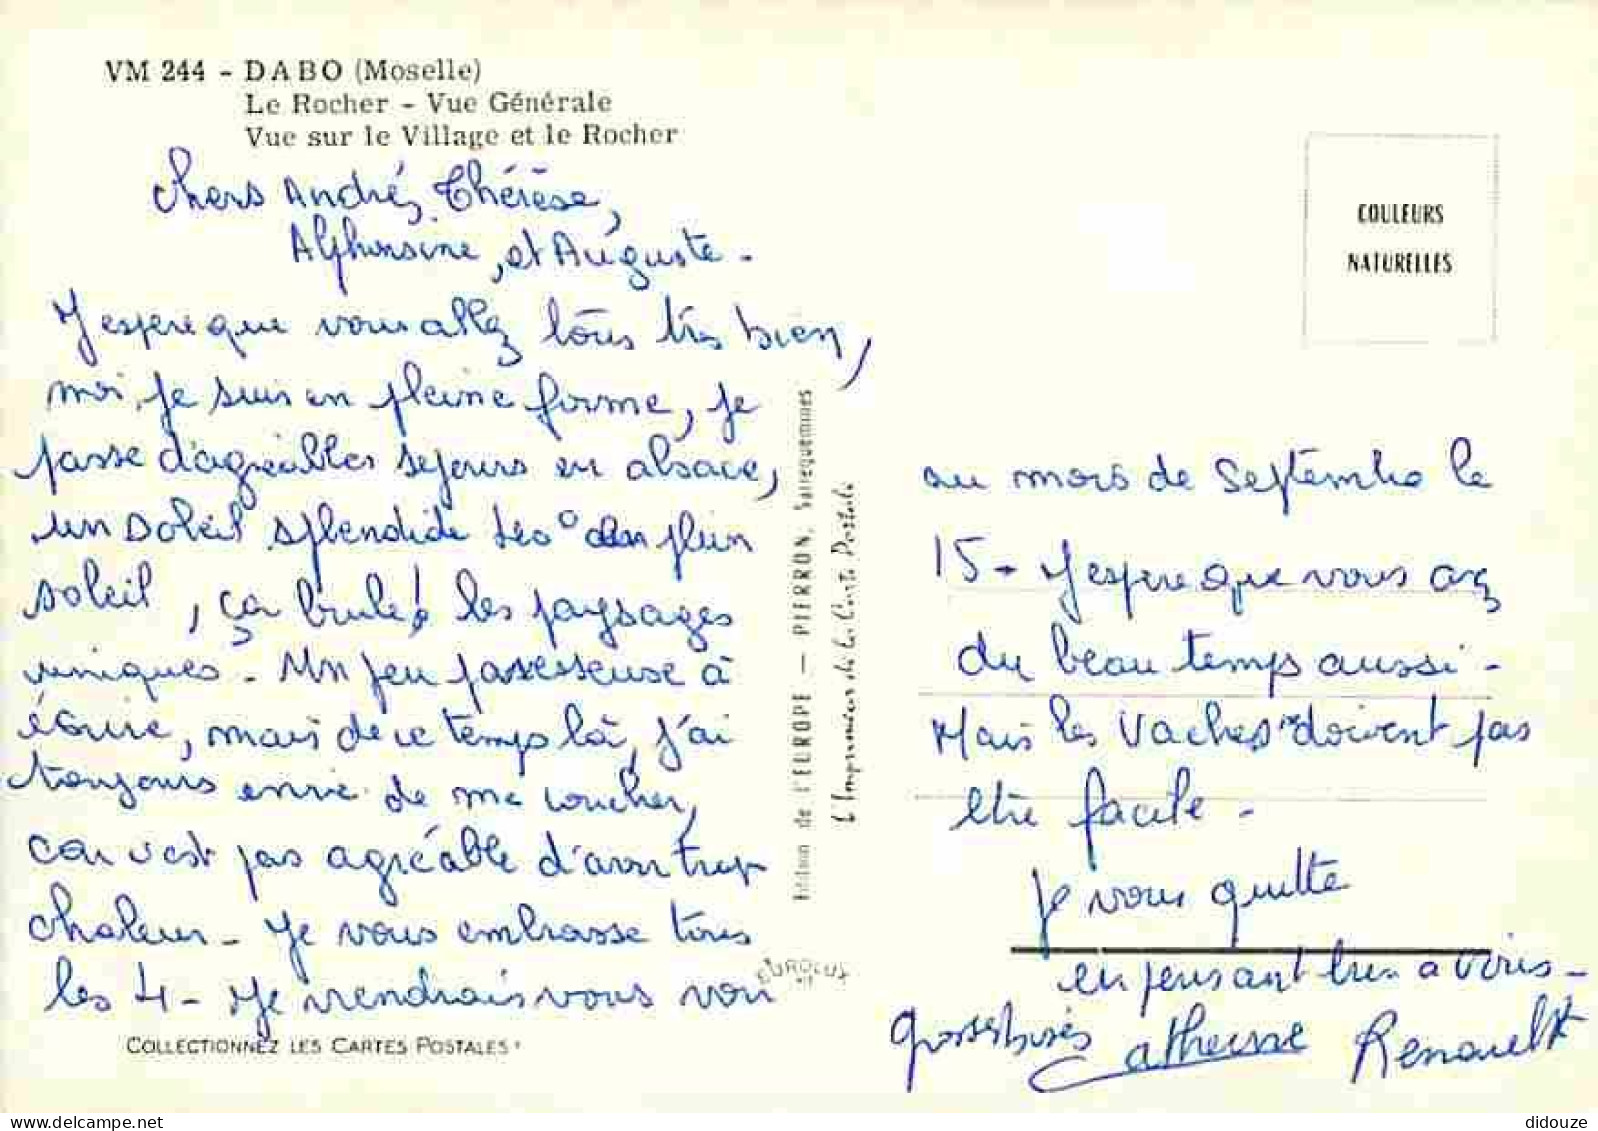 VM 244 - DABO (Moselle)
Le Rocher - Vue Générale
Vue sur le Village et le Rocher
chers André, Thérèse,
Alphonsine, et Auguste -
J'espere que vous allez tous très bien,
moi je suis en pleine forme, je
passe d'agréables sejours en alsace,
un soleil splendide plein
soleil, ça brule! les paysages
uniques - Un peu paresseuse à
écrire, mais de ce temps là, j'ai
toujours envie de me coucher,
car c'est pas agréable d'avoir trop
chaleur - Je vous embrasse tous
les 4 - Je viendrais vous voir
COLLECTIONNEZ LES CARTES POSTALES
Edition de l'EUROPE — PIERRON, Sarreguemines
L'Imprimerie de la Carte Postale
EUROLUX
COULEURS
NATURELLES
au mois de Septembre le
15 - J'espere que vous avez
du beau temps aussi -
Mais les Vaches doivent pas
etre facile -
Je vous quitte
en pensant bien a vous -
Grosses bises Catherine Renault
didouze